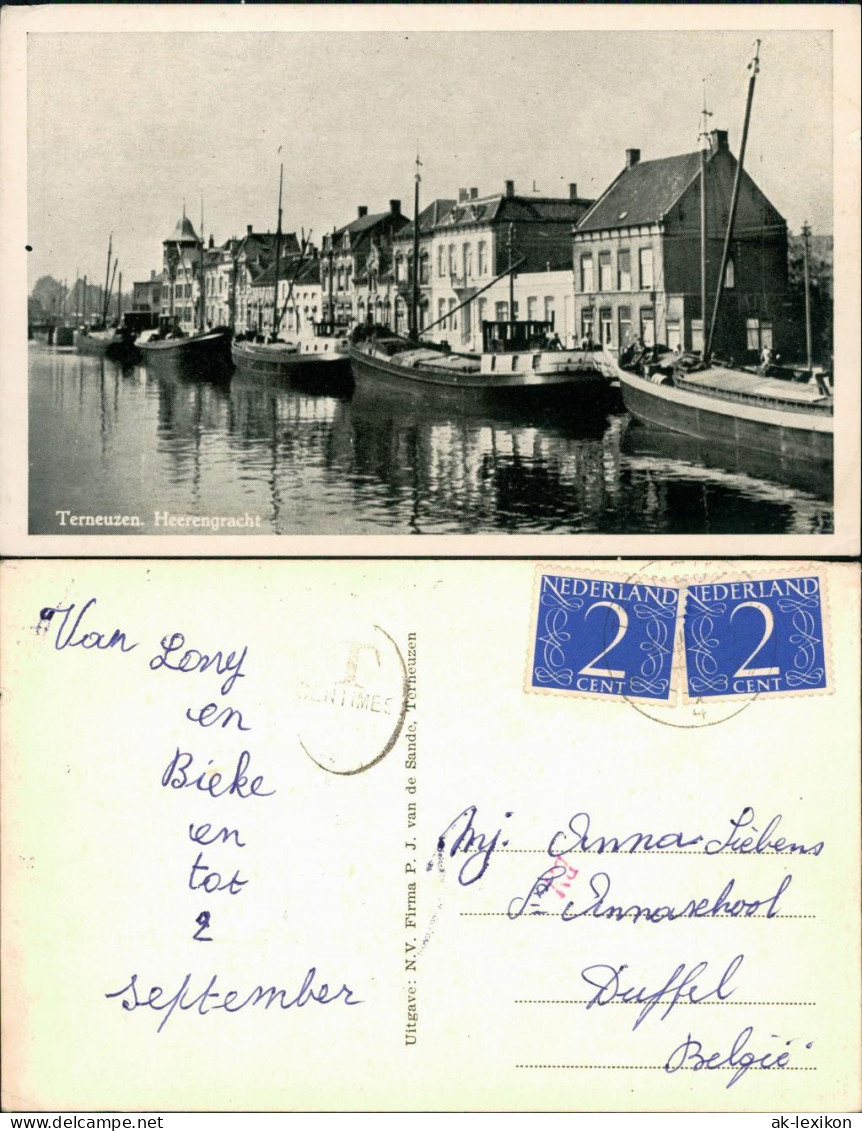 Terneuzen. Heerengracht
Van Lony
en
Bieke
en
tot
2
september
T
CENTIMES
Uitgave: N.V. Firma P. J. van de Sande, Terneuzen
NEDERLAND
2
CENT
NEDERLAND
2
CENT
4
Mj. Anna Siebens
St Annaschool
Duffel
België
www.ak-ansichtskarten.de
ak-lexikon